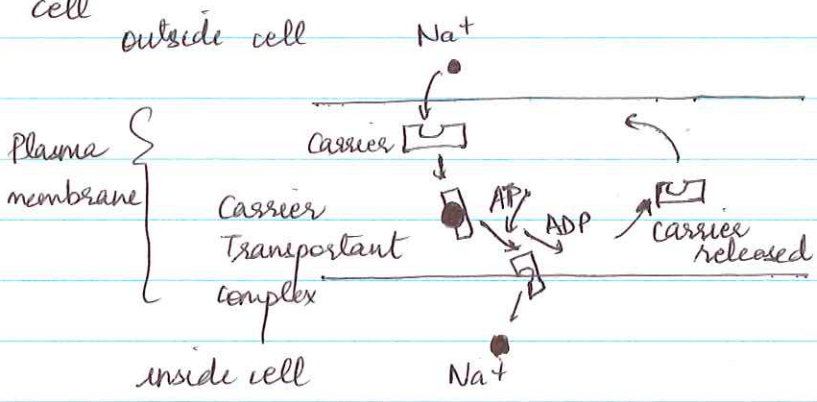 cell
outside cell
Na+
Plasma
membrane
Carrier
Carrier
Transportant
complex
ATP
ADP
carrier
released
inside cell
Na+